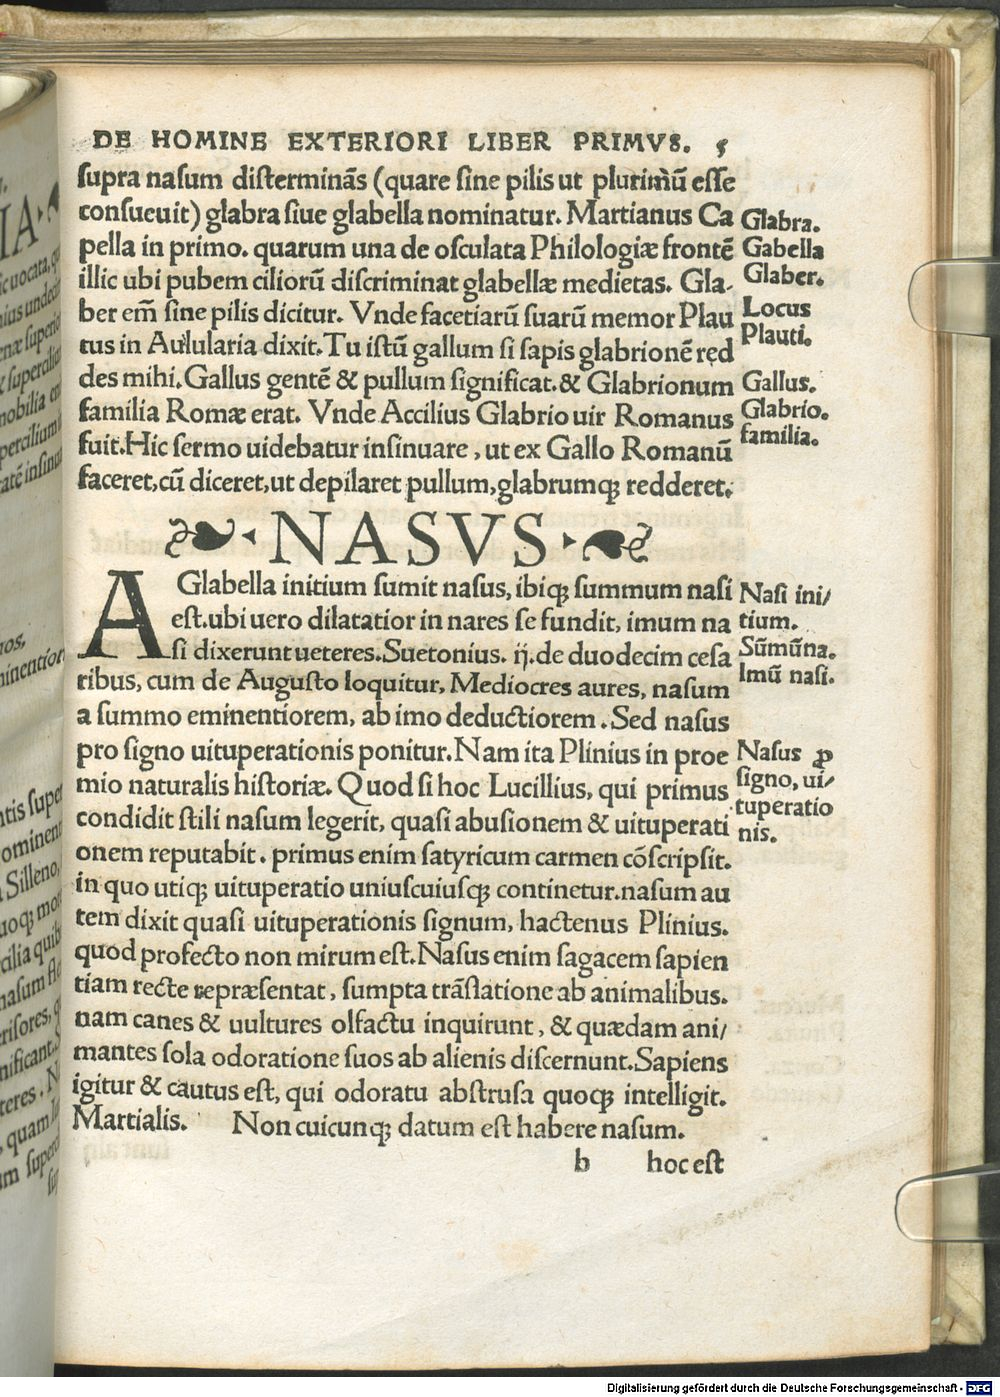 DE HOMINE EXTERIORI LIBER PRIMVS. 5
supra nasum disterminãs (quare sine pilis ut plurimũ esse
consueuit) glabra siue glabella nominatur. Martianus Ca
pella in primo. quarum una de osculata Philologiæ frontẽ
illic ubi pubem ciliorũ discriminat glabellæ medietas. Gla-
ber em̃ sine pilis dicitur. Vnde facetiarũ suarũ memor Plau
tus in Aulularia dixit. Tu istũ gallum si sapis glabrionẽ ręd
des mihi. Gallus gentẽ & pullum significat. & Glabrionum
familia Romæ erat. Vnde Accilius Glabrio uir Romanus
fuit. Hic sermo uidebatur insinuare, ut ex Gallo Romanũ
faceret, cũ diceret, ut depilaret pullum, glabrumq; redderet.
Glabra.
Gabella
Glaber.
Locus
Plauti.
Gallus.
Glabrio.
familia.
NASVS
A Glabella initium sumit nasus, ibiq; summum nasi
est. ubi uero dilatatior in nares se fundit, imum na
si dixerunt ueteres. Suetonius. ij. de duodecim cesa
ribus, cum de Augusto loquitur, Mediocres aures, nasum
a summo eminentiorem, ab imo deductiorem. Sed nasus
pro signo uituperationis ponitur. Nam ita Plinius in proe
mio naturalis historiæ. Quod si hoc Lucillius, qui primus
condidit stili nasum legerit, quasi abusionem & uituperati
onem reputabit. primus enim satyricum carmen cõscripsit.
in quo utiq; uituperatio uniuscuiusq; continetur. nasum au
tem dixit quasi uituperationis signum, hactenus Plinius.
quod profecto non mirum est. Nasus enim sagacem sapien
tiam recte repræsentat, sumpta trãslatione ab animalibus.
nam canes & uultures olfactu inquirunt, & quædam ani/
mantes sola odoratione suos ab alienis discernunt. Sapiens
igitur & cautus est, qui odoratu abstrusa quoq; intelligit.
Martialis. Non cuicunq; datum est habere nasum.
b hoc est
Nasi ini/
tium.
Sũmũ na.
Imũ nasi.
Nasus ꝓ
signo, ui/
tuperatio
nis.
Digitalisierung gefördert durch die Deutsche Forschungsgemeinschaft - DFG